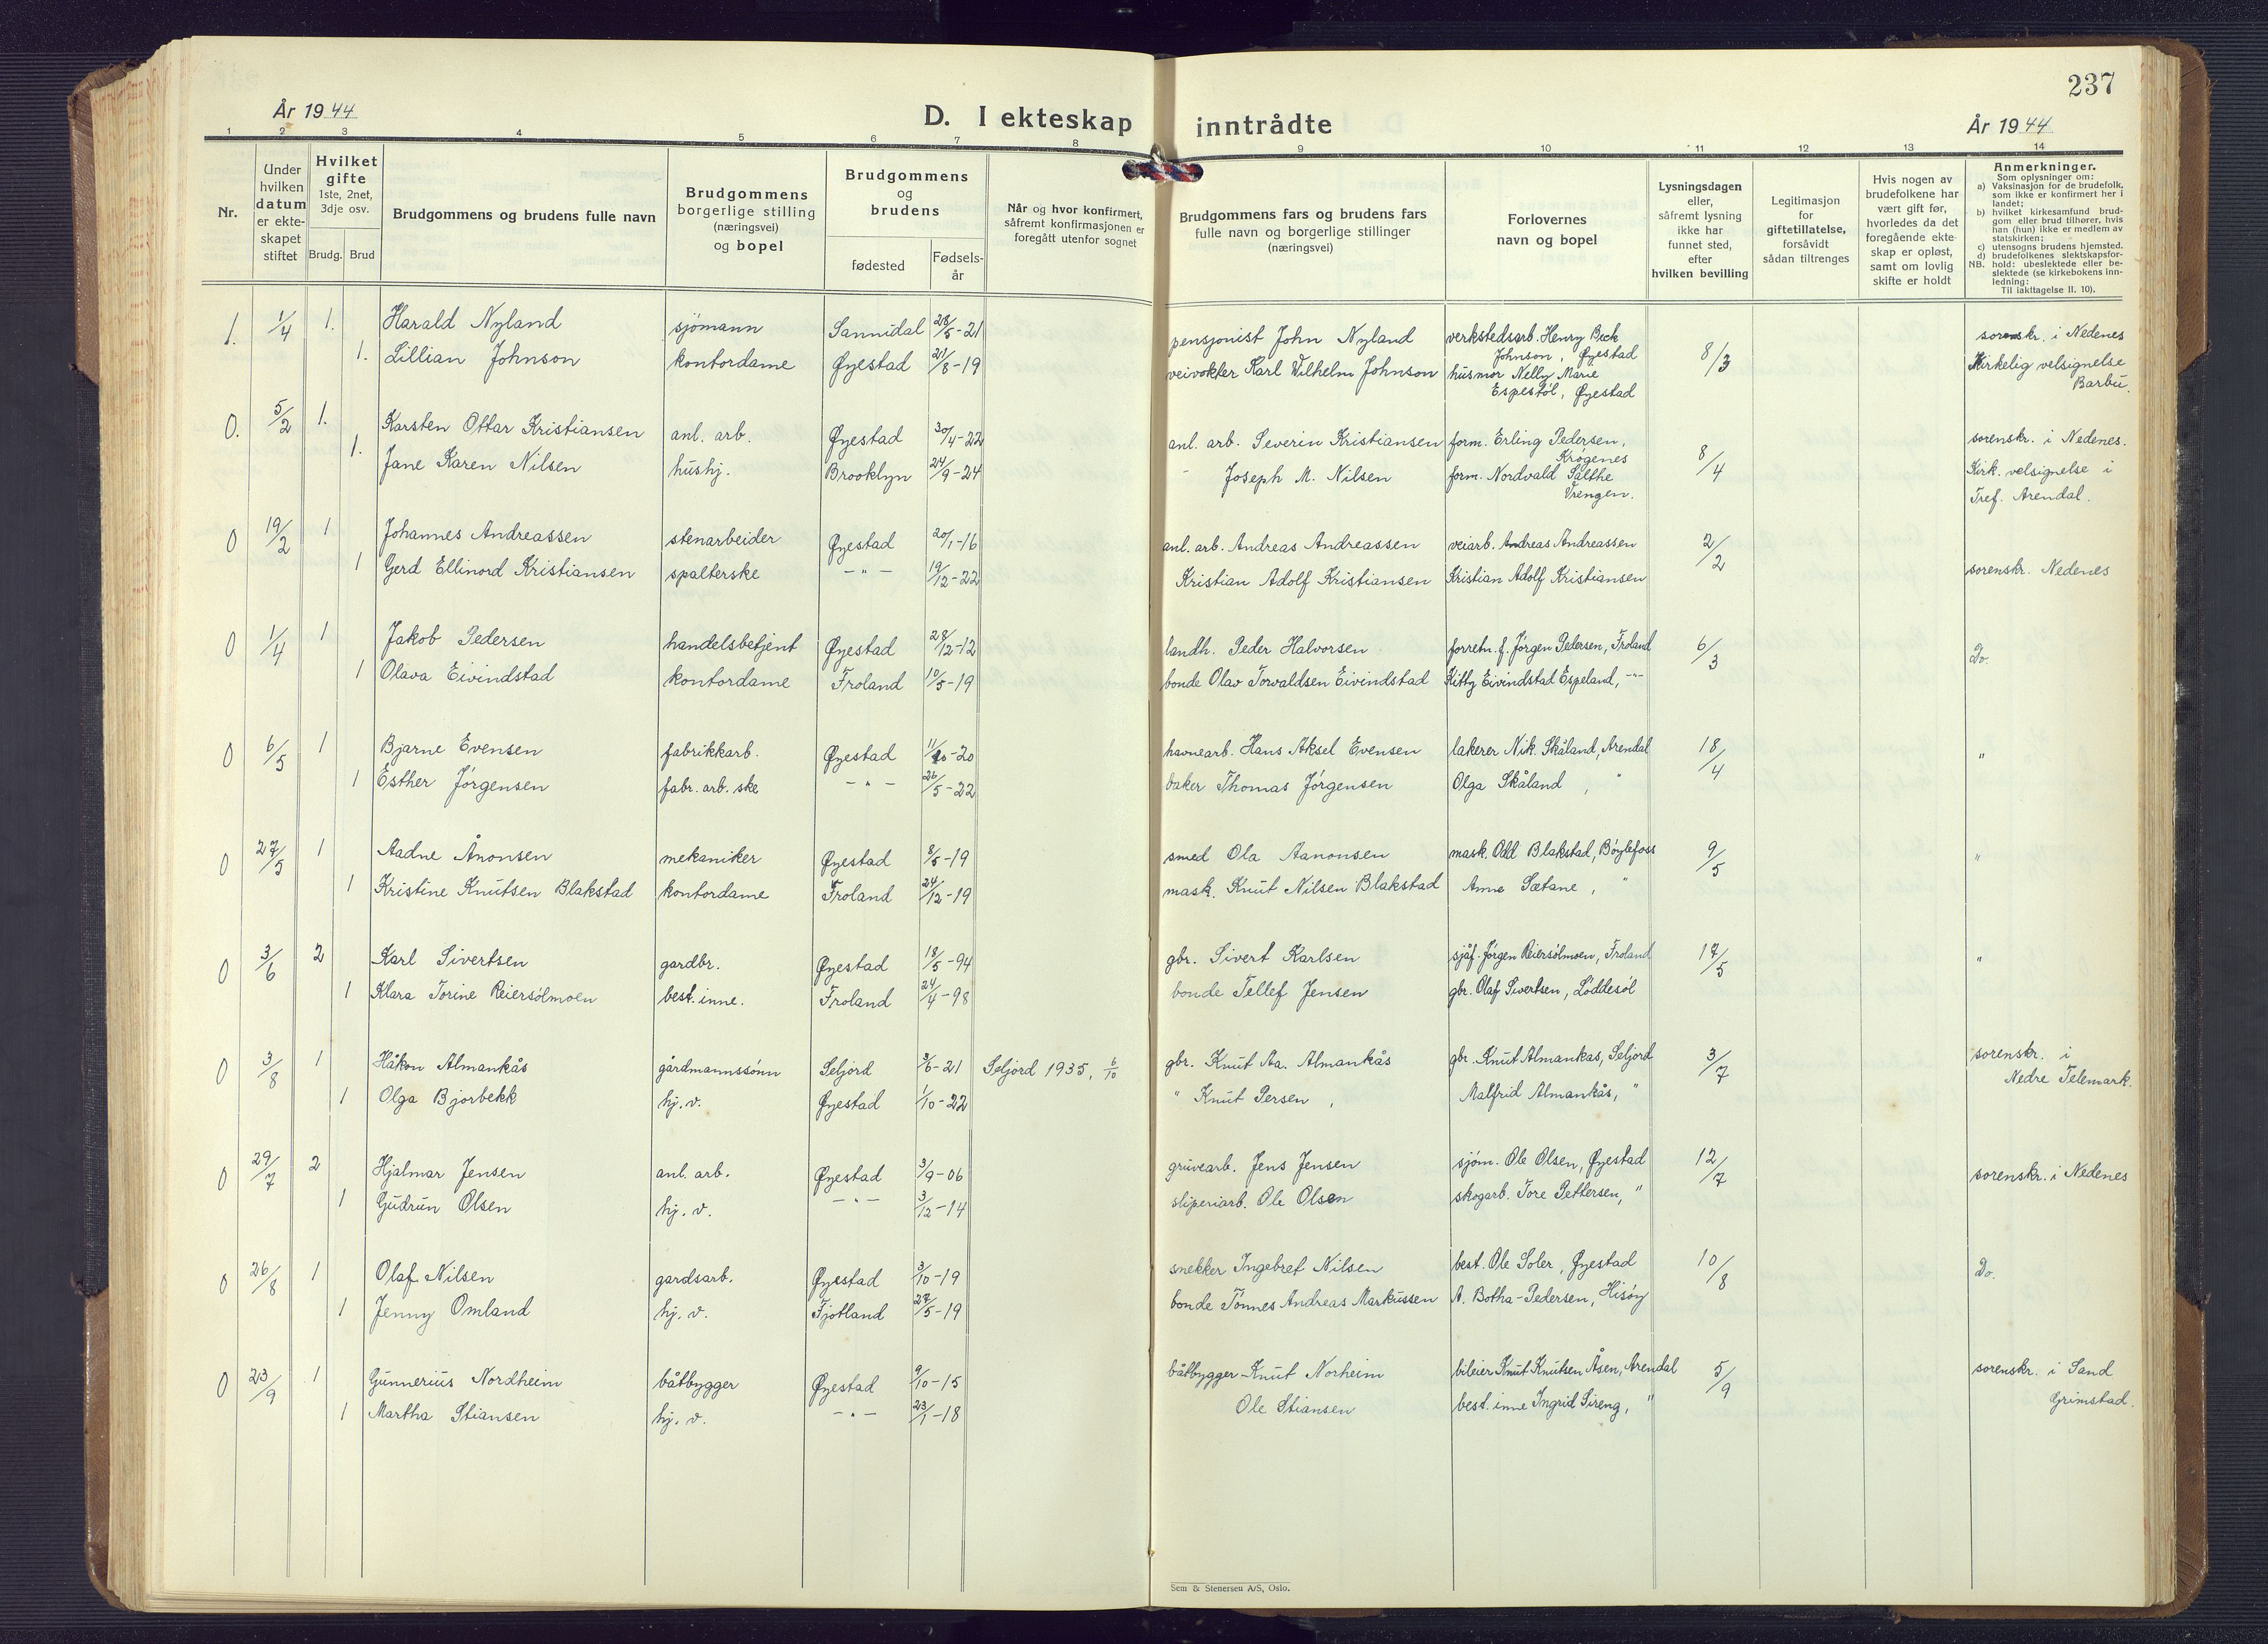 237
År 1944
D. I ekteskap inntrådte
År 1944
1 2 3 4 5 6 7 8 9 10 11 12 13 14
Nr.
Under hvilken datum er ekteskapet stiftet
Hvilket gifte 1ste, 2net, 3dje osv.
Brudg. Brud
Brudgommens og brudens fulle navn
Brudgommens borgerlige stilling (næringsvei) og bopel
Brudgommens og brudens
fødested
Fødselsår
Når og hvor konfirmert, såfremt konfirmasjonen er foregått utenfor sognet
Brudgommens fars og brudens fars fulle navn og borgerlige stillinger (næringsvei)
Forlovernes navn og bopel
Lysningsdagen eller, såfremt lysning ikke har funnet sted, efter hvilken bevilling
Legitimasjon for giftetillatelse, forsåvidt sådan tiltrenges
Hvis nogen av brudefolkene har vært gift før, hvorledes da det foregående ekteskap er opløst, samt om lovlig skifte er holdt
Anmerkninger.
Som oplysninger om:
a) Vaksinasjon for de brudefolk, som ikke er konfirmert her i landet;
b) hvilket kirkesamfund brudgom eller brud tilhører, hvis han (hun) ikke er medlem av statskirken;
c) utensogns brudens hjemsted.
d) brudefolkenes slektskapsforhold: ubeslektede eller beslektede (se kirkebokens innledning:
NB. Til iakttagelse II. 10).
1. 1/4 1. Harald Nyland sjömann Sannidal 28/5-21 pensjonist John Nyland verkstedsarb. Henry Beck Johnson, Øyestad 8/3 sorenskr. i Nedenes
1. Lillian Johnson kontordame Øyestad 21/8-19 veivokter Karl Wilhelm Johnson husmor Nelly Marie Espestöl, Øyestad Kirkelig velsignelse Barbu.
0. 5/2 1. Karsten Ottar Kristiansen anl. arb. Øyestad 30/4-22 anl. arb. Severin Kristiansen form. Erling Pedersen, Krøgenes 8/4 sorenskr. i Nedenes.
1. Jane Karen Nilsen hushj. Brooklyn 24/9-24 - Joseph M. Nilsen form. Nordvald Salthe Trengen. Kirk. velsignelse i Tref. Arendal.
0 19/2 1 Johannes Andreassen stenarbeider Øyestad 20/1-16 anl. arb. Andreas Andreassen veiarb. Andreas Andreassen 2/2
1 Gerd Ellinord Kristiansen spalterske -"- 19/12-22 Kristian Adolf Kristiansen Kristian Adolf Kristiansen sorenskr. Nedenes
0 1/4 1 Jakob Pedersen handelsbetjent Øyestad 28/12-12 landh. Peder Halvorsen forretn.f. Jörgen Pedersen, Froland 6/3 Do.
1 Olava Eivindstad kontordame Froland 10/5-19 bonde Olav Torvaldsen Eivindstad Kitty Eivindstad Espeland, -"-
0 6/5 1 Bjarne Evensen fabrikkarb. Øyestad 11/10-20 havnearb. Hans Aksel Evensen lakerer Nik. Skåland, Arendal 18/4 "
1 Esther Jörgensen fabr. arb. ske -"- 26/5-22 baker Thomas Jörgensen Olga Skåland, "
0 27/5 1 Aadne Ånonsen mekaniker Øyestad 8/5-19 smed Ola Aanonsen mask. Odd Blakstad, Böylefoss 9/5 "
1 Kristine Knutsen Blakstad kontordame Froland 24/12-19 mask. Knut Nilsen Blakstad Anne Sætane, "
0 3/6 2 Karl Sivertsen gardbr. Øyestad 18/5-94 gbr. Sivert Karlsen sjåf. Jörgen Reiersölmoen, Froland 17/5 "
1 Klara Torine Reiersölmoen best.inne. Froland 24/4-98 bonde Tellef Jensen gbr. Olaf Sivertsen, Löddesöl
0 3/8 1 Håkon Almankås gårdmannssönn Seljord 3/6-21 Seljord 1935, 6/10 gbr. Knut Aa. Almankås gbr. Knut Almankas, Seljord 3/7 sorenskr. i
1 Olga Bjorbekk hj. v. Øyestad 1/10-22 " Knut Persen, Malfrid Almankås, " Nedre Telemark.
0 29/7 2 Hjalmar Jensen anl. arb. Øyestad 3/9-06 gruvearb. Jens Jensen sjöm. Ole Olsen, Øyestad 12/7 sorenskr. i Nedenes
1 Gudrun Olsen hj. v. -"- 3/12-14 sliperiarb. Ole Olsen skogarb. Tore Pettersen, "
0 26/8 1 Olaf Nilsen gardsarb. Øyestad 3/10-19 snekker Ingebret Nilsen best. Ole Soler, Øyestad 10/8 Do.
1 Jenny Omland hj. v. Fjotland 27/5-19 bonde Tönnes Andreas Markussen A. Botha-Pedersen, Hisöy
0 23/9 1 Gunnerius Nordheim båtbygger Øyestad 9/10-15 båtbygger Knut Norheim bileier Knut Knutsen Åsen, Arendal 5/9 sorenskr. i Sand
1 Martha Stiansen hj. v. -"- 23/1-18 Ole Stiansen best.inne Ingrid Sireng, " Grimstad.
Sem & Stenersen A/S, Oslo.